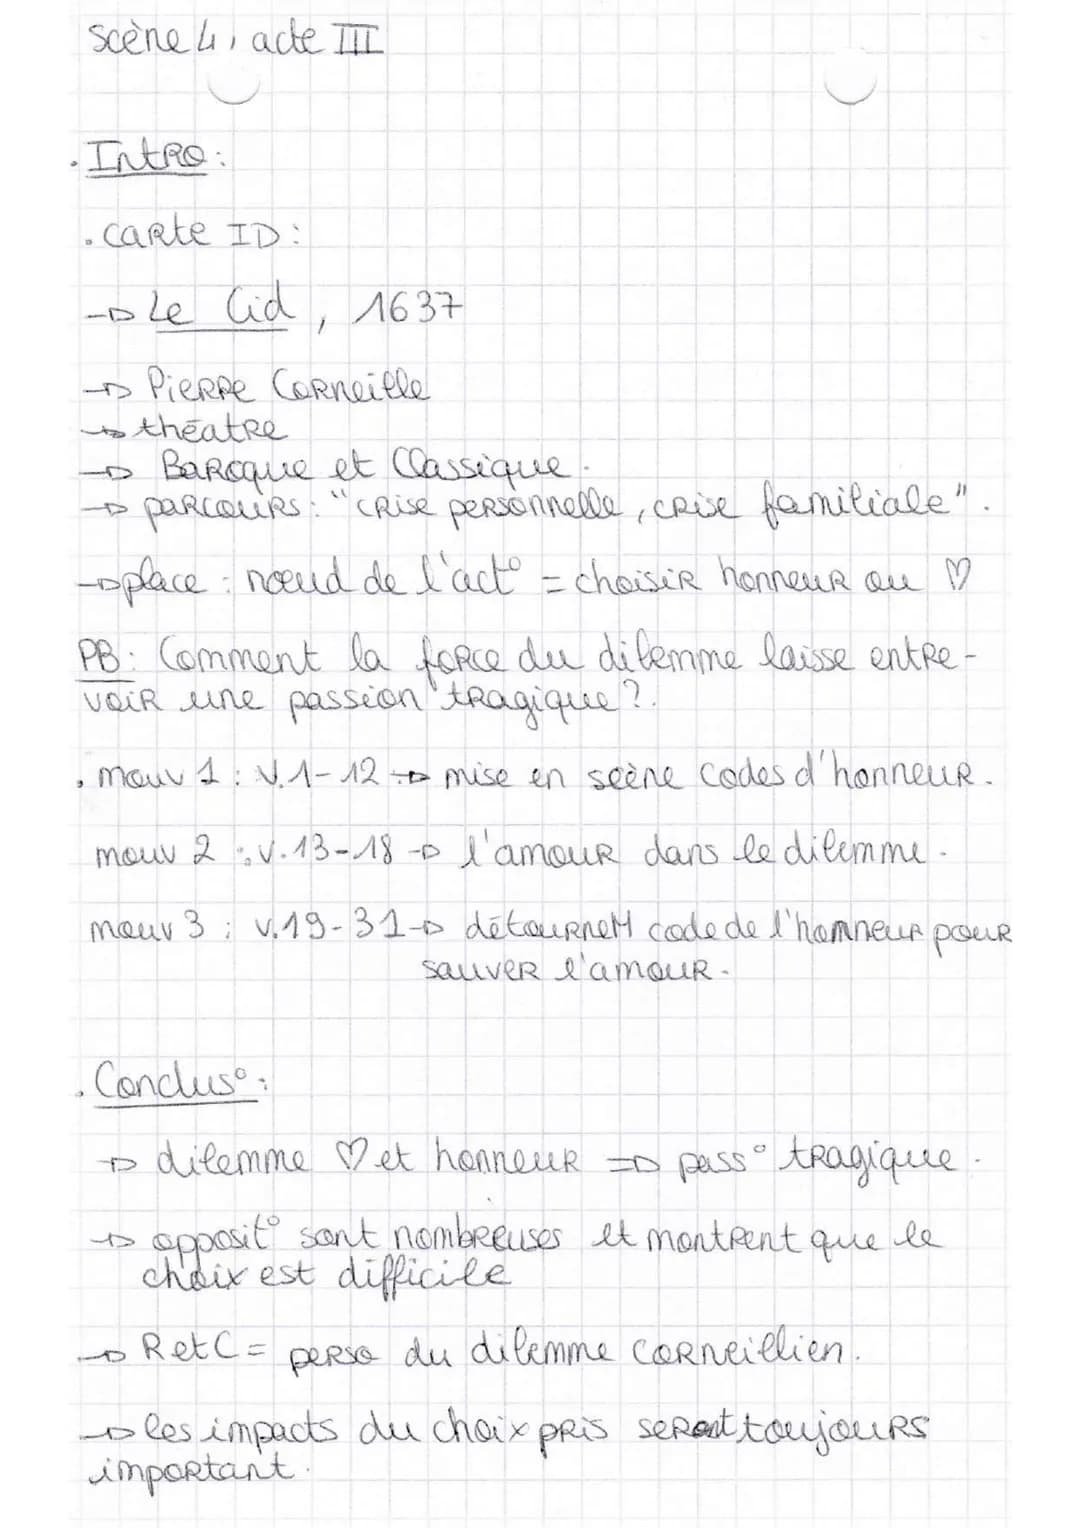 Scène 4, acte III
. Intro :
. carte ID :
→ Le Cid, 1637
→ Pierre Corneille
→ théatre
→ Baroque et Classique.
→ parcours : "crise personnelle, crise familiale".
→ place : nœud de l'act° = choisir honneur ou ♡
PB : Comment la force du dilemme laisse entre-
voir une passion tragique ?.
. mouv 1 : V.1-12 → mise en scène codes d'honneur.
mouv 2 : v.13-18 → l'amour dans le dilemme.
mouv 3 : v.19-31 → détourneM code de l'honneur pour
sauver l'amour.
. Conclus° :
→ dilemme ♡ et honneur => pass° tragique.
→ opposit° sont nombreuses et montrent que le
choix est difficile
→ R et C = perso du dilemme cornéillien.
→ les impacts du choix pris seront toujours
important.